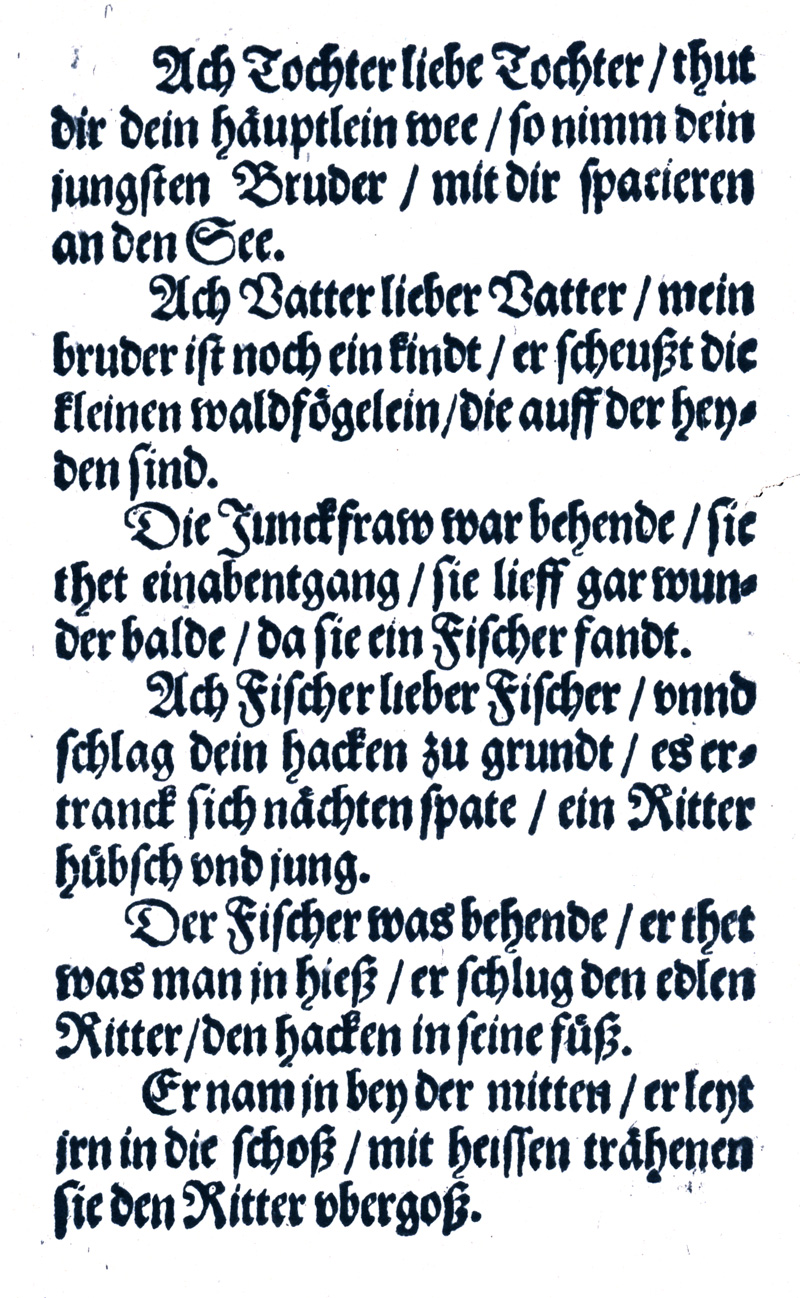 Ach Tochter liebe Tochter / thut
dir dein häuptlein wee / so nimm dein
jungsten Bruder / mit dir spacieren
an den See.
Ach Vatter lieber Vatter / mein
bruder ist noch ein kindt / er scheußt die
kleinen waldfögelein/die auff der hey-
den sind.
Die Junckfraw war behende / sie
thet einabentgang / sie lieff gar wun-
der balde / da sie ein Fischer fandt.
Ach Fischer lieber Fischer / vnnd
schlag dein hacken zu grundt / es er-
tranck sich nächten spate / ein Ritter
hübsch vnd jung.
Der Fischer was behende / er thet
was man jn hieß / er schlug den edlen
Ritter/den hacken in seine füß.
Er nam jn bey der mitten / er leyt
jrn in die schoß / mit heissen trähenen
sie den Ritter vbergoß.